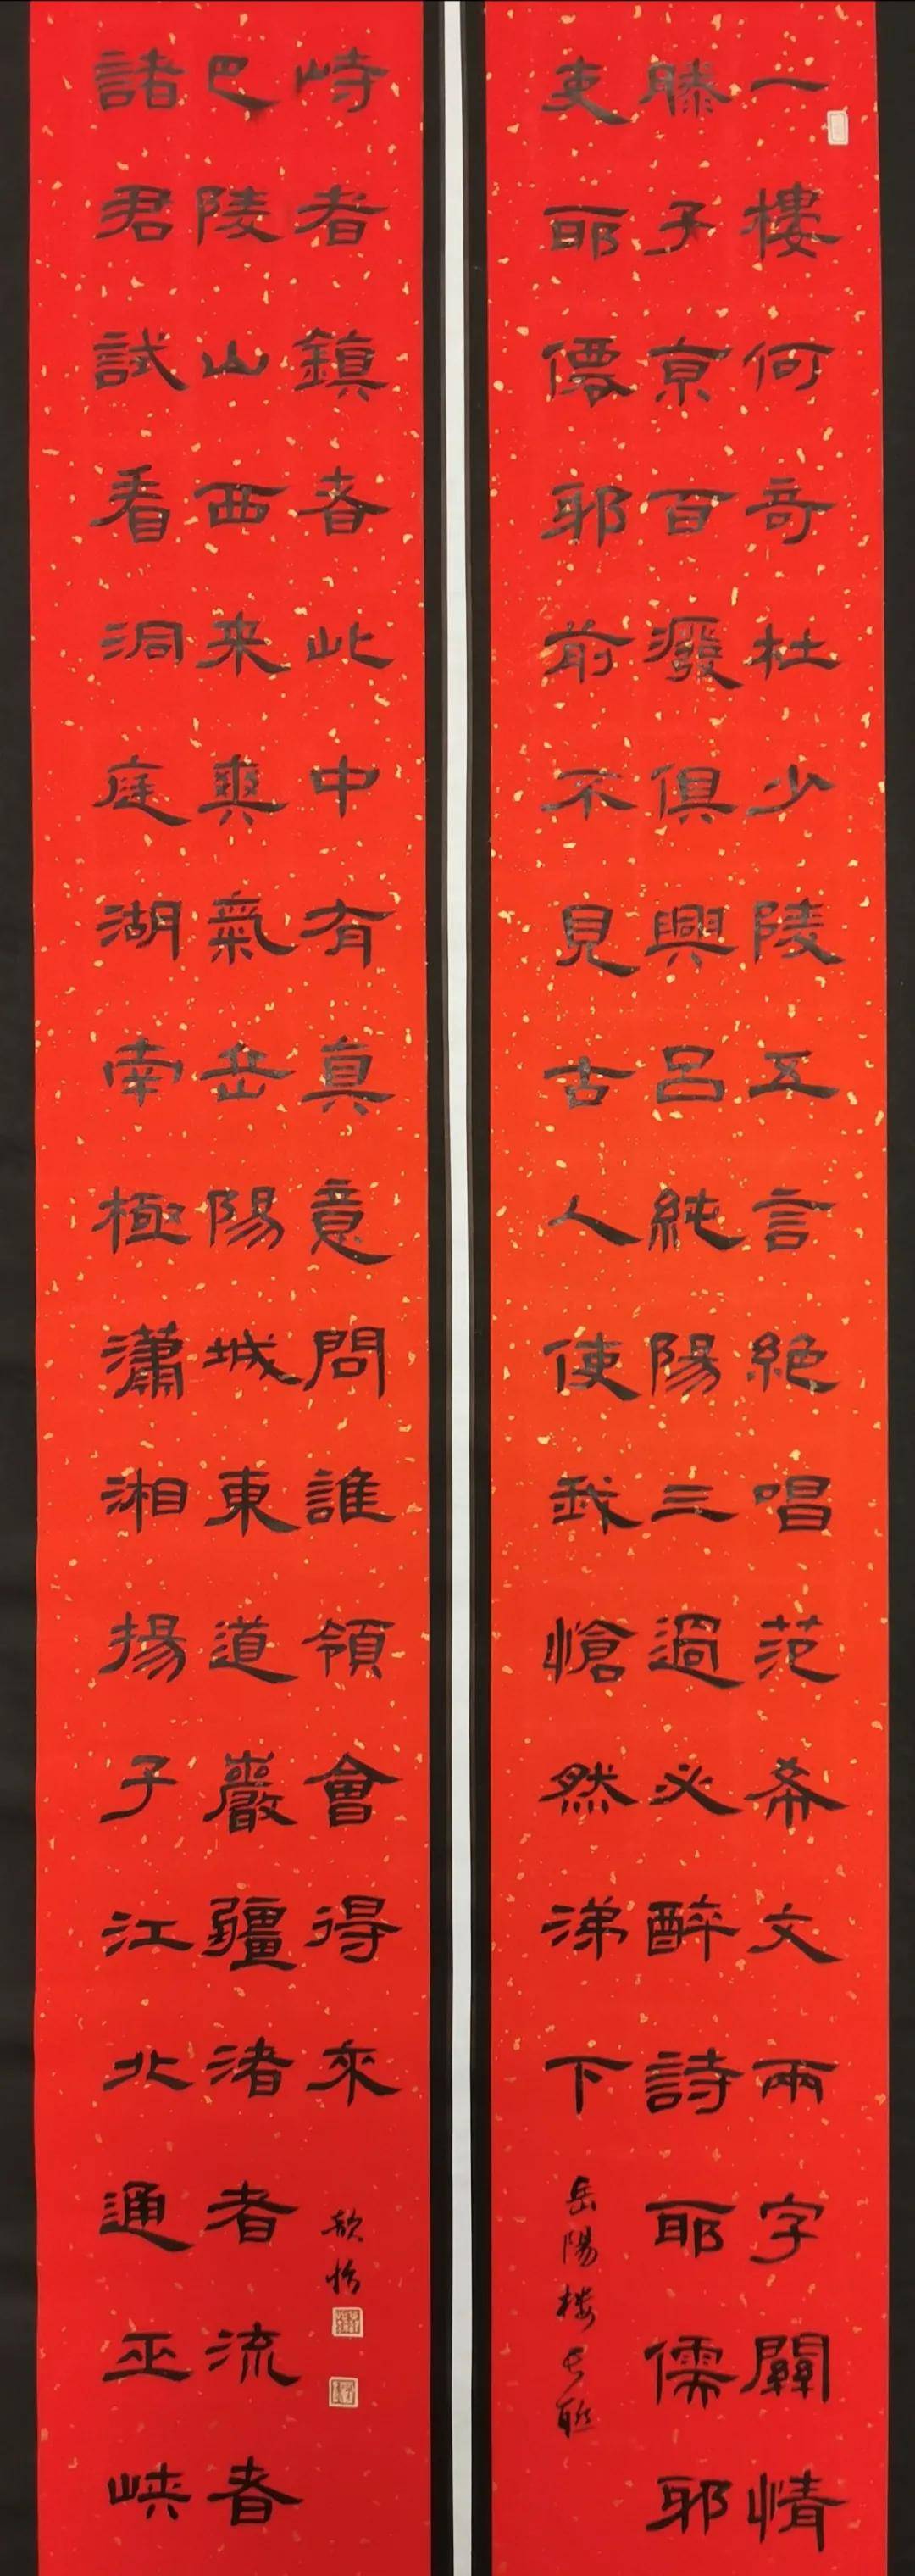 一樓何奇杜少陵五言絕唱范希文兩字關情
滕子京百廢俱興呂純陽三過必醉詩耶儒耶
吏耶僊耶前不見古人使我愴然涕下
岳陽楼长聯
諸君試看洞庭湖南極瀟湘揚子江北通巫峽
巴陵山西来爽氣岳陽城東道巖疆渚者流者
峙者鎮者此中有真意問誰領會得來